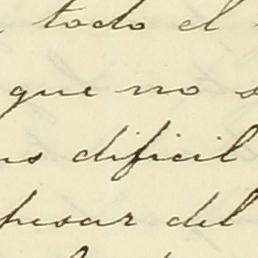 todo el
que no s
us dificil
pesar del